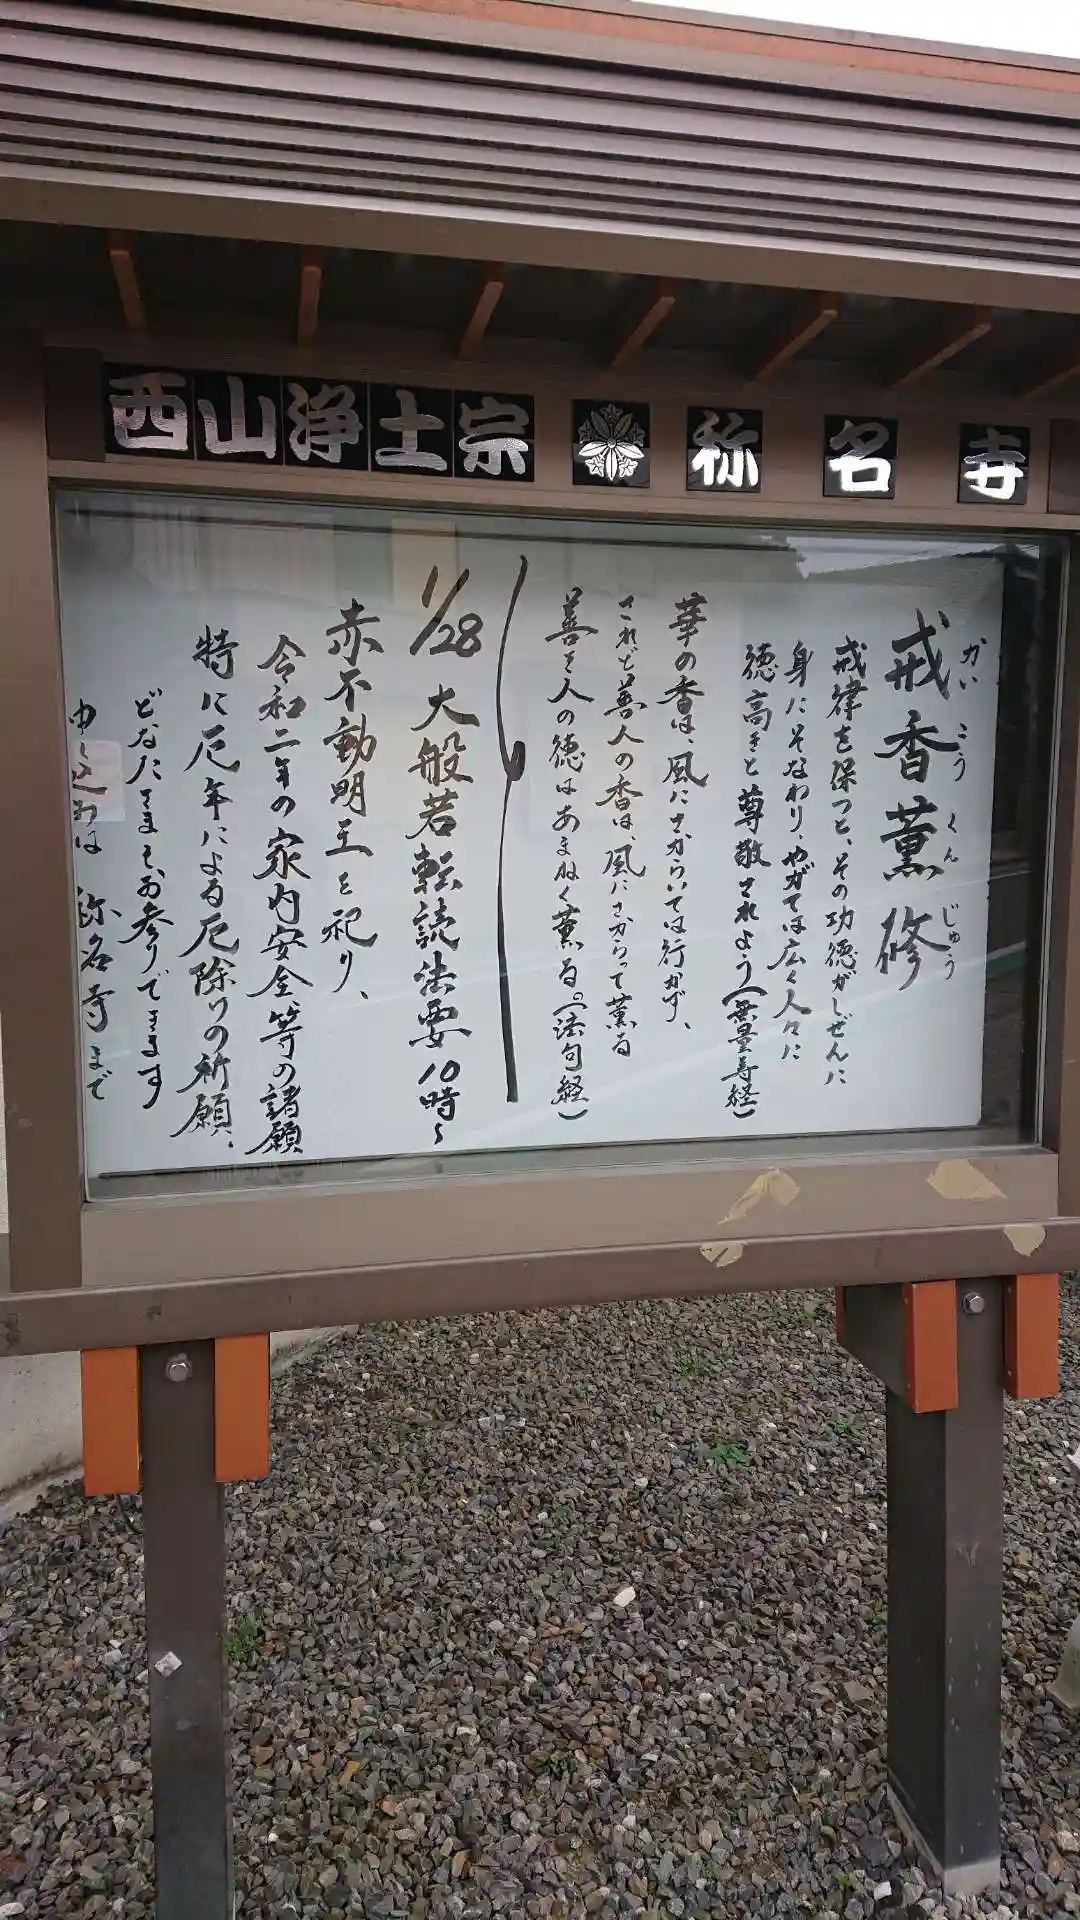 西山浄土宗 称名寺
かい こう くん じゅう
戒香薫修
戒律を保つと、その功徳がしぜんに
身にそなわり、やがては広く人々に
徳高きと尊敬されよう(無量寿経)
華の香は、風にさからいては行かず、
されど善人の香は、風にさからって薫る
善き人の徳はあまねく薫る。(法句経)
1/28 大般若転読法要 10時〜
赤不動明王を祀り、
令和二年の家内安全等の諸願
特に厄年による厄除けの祈願、
どなたさまもお参りできます
申し込みは 称名寺まで